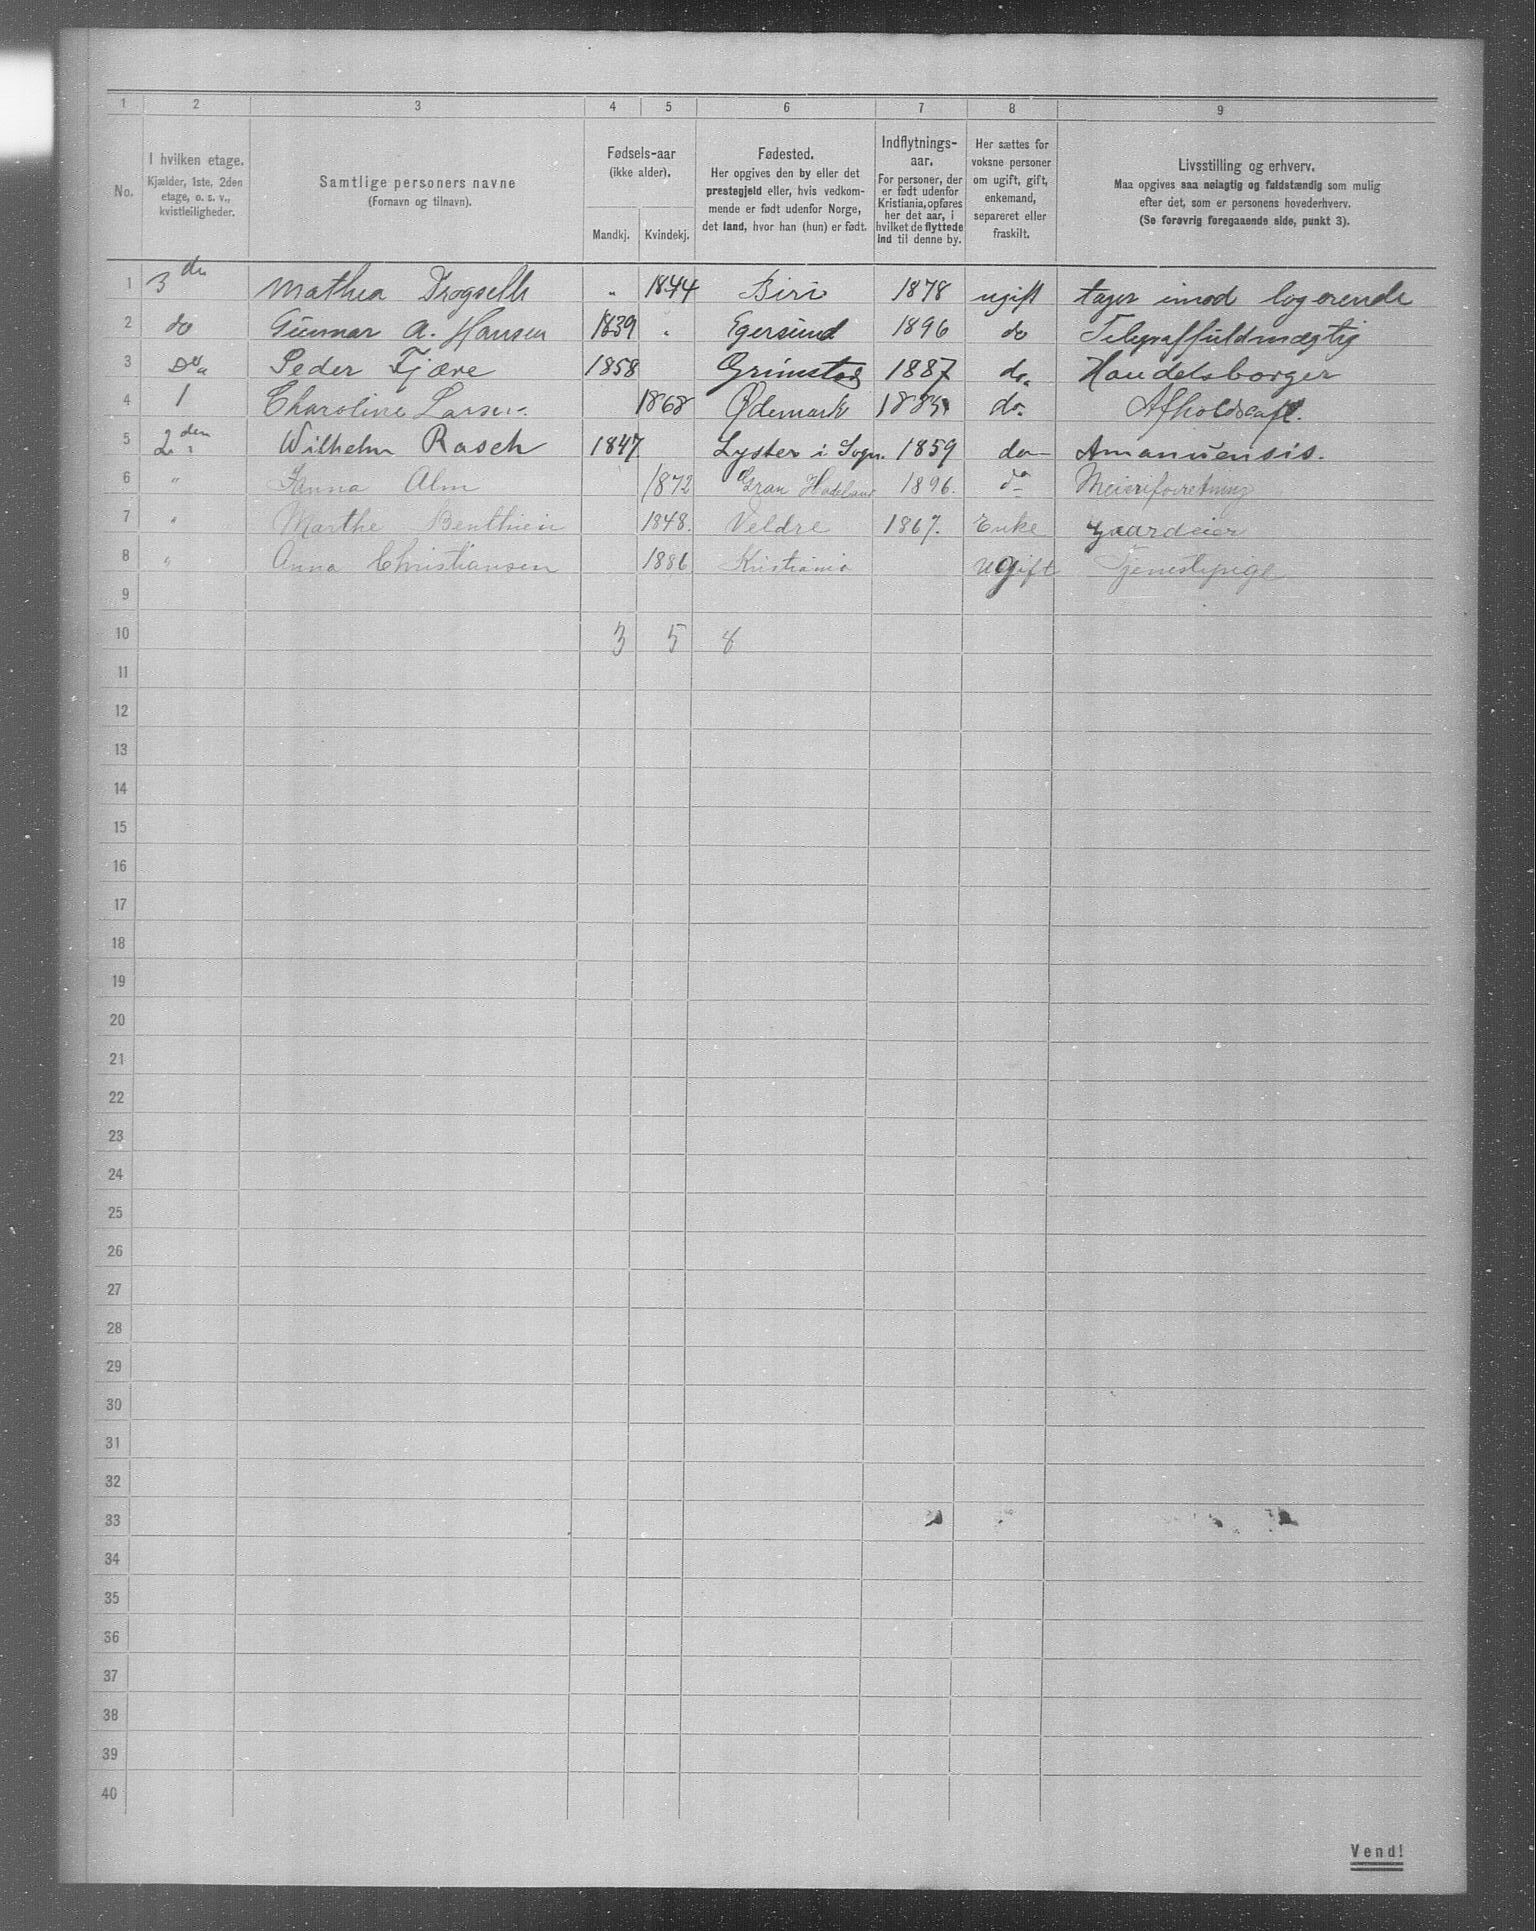 1 2 3 4 5 6 7 8 9
No.
I hvilken etage.
Kjælder, 1ste, 2den
etage, o. s. v.,
kvistleiligheder.
Samtlige personers navne
(Fornavn og tilnavn).
Fødsels-aar
(ikke alder).
Mandkj. Kvindekj.
Fødested.
Her opgives den by eller det
prestegjeld eller, hvis vedkom-
mende er født udenfor Norge,
det land, hvor han (hun) er født.
Indflytnings-
aar.
For personer, der
er født udenfor
Kristiania, opføres
her det aar, i
hvilket de flyttede
ind til denne by.
Her sættes for
voksne personer
om ugift, gift,
enkemand,
separeret eller
fraskilt.
Livsstilling og erhverv.
Maa opgives saa nøiagtig og fuldstændig som mulig
efter det, som er personens hovederhverv.
(Se forøvrig foregaaende side, punkt 3).
1 3 den Mathea " 1844 Biri 1878 ugift tager imod logerende
2 do Gunnar A. Hansen 1839 " Egersund 1896 do Telegraffuldmægtig
3 Do Peder Fjære 1858 Grimstad 1887 do. Handelsborger
4 1 Charoline Larsen 1868 Ødemark do. Afholdscafe.
5 2 den Wilhelm Rasch 1847 Lyster i Sogn. 1859 do Amanuensis.
6 " Alm 1872 Gran Hadeland 1896. do Meieriforretning
7 " Marthe Benthien 1848. Veldre 1867. Enke gaardeier
8 " Anna Christiansen 1886 Kristiania ugift Tjenestepige
9
10 3 5 8
11
12
13
14
15
16
17
18
19
20
21
22
23
24
25
26
27
28
29
30
31
32
33
34
35
36
37
38
39
40
Vend!